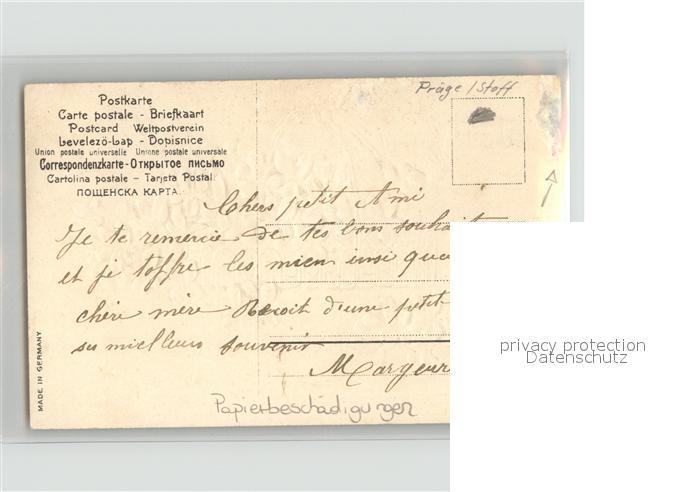 Präge / Stoff
Postkarte
Carte postale - Briefkaart
Postcard Weltpostverein
Levelező-Lap - Dopisnice
Union postale universelle Unione postale universale
Correspondenzkarte - Открытое письмо
Cartolina postale - Tarjeta Postal
ПОЩЕНСКА КАРТА
Chers petit Ami
Je te remercie de tes bons souhait
et je t'offre les mien insi que
chère mère Recoit d'une petit
ses mielleurs souvenir
MADE IN GERMANY
Papierbeschädigungen
privacy protection
Datenschutz